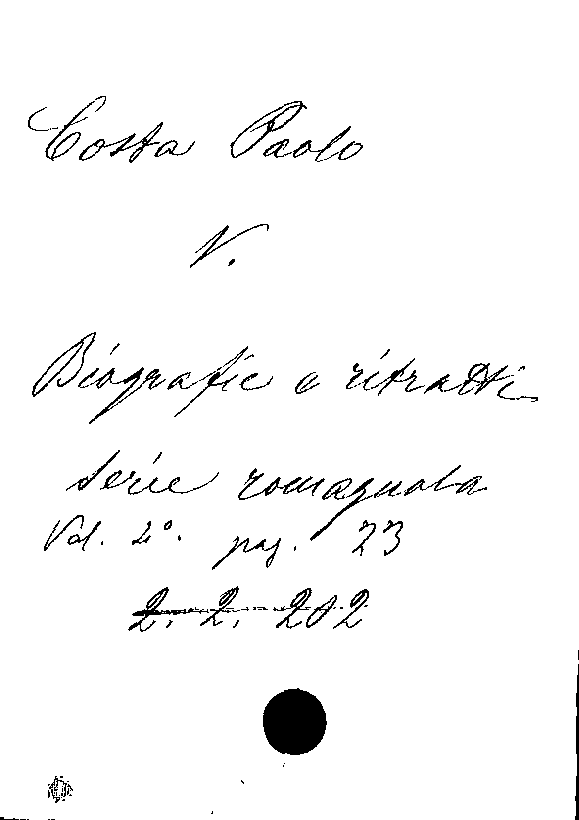 Costa Paolo
V.
Biografie e ritratti
serie romagnola
Vol. 2º. pag. 23
2. 2. 202